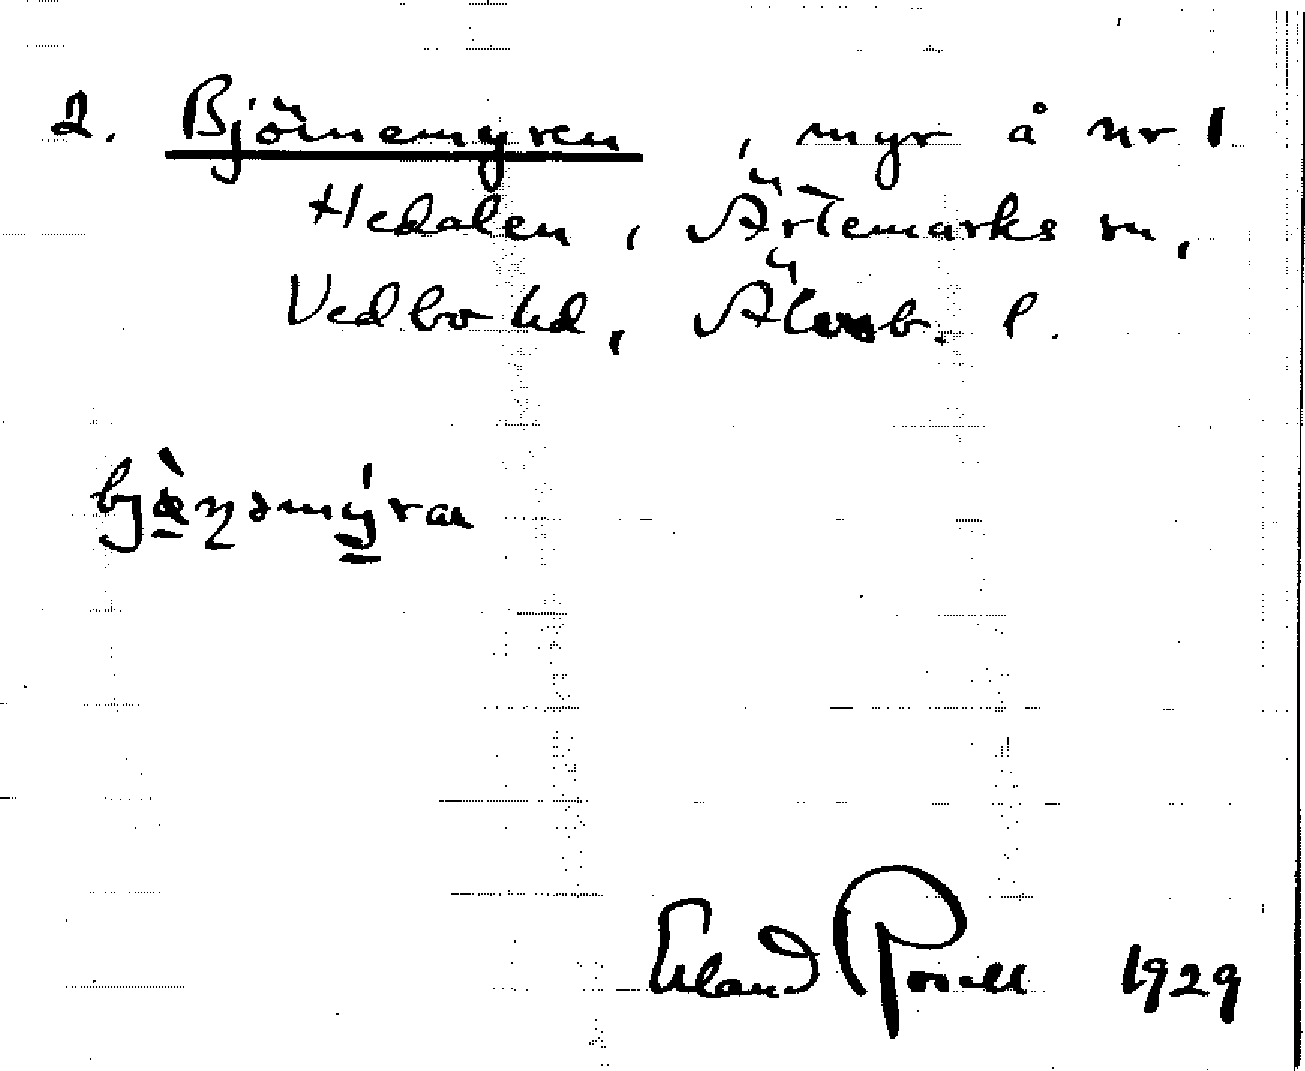 2. Björnemyren, myr å nr 1
Hedalen, Ärtemarks sn,
Vedbo hd, Älvsb. l.
Erland Rosell 1929